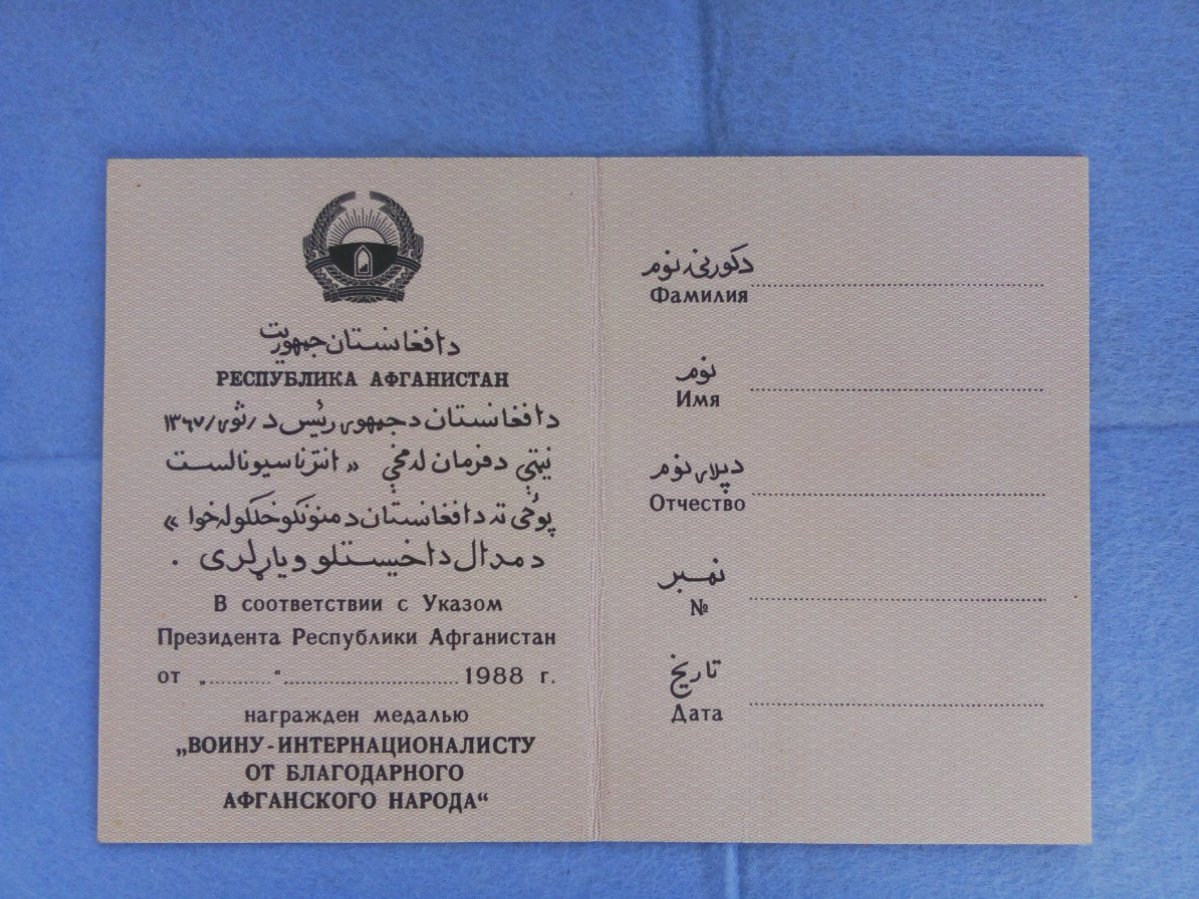 دافغانستان جمهوريت
РЕСПУБЛИКА АФГАНИСТАН
دافغانستان دجمهوری رئیس د /ثوی/۱۳۶۷
نيټې دفرمان له مخې « انترناسیونالست
پوځی ته دافغانستان دمنونکوخلکوله خوا »
دمدال داخیستلو ویاړلری .
В соответствии с Указом
Президента Республики Афганистан
от „..........“............................ 1988 г.
награжден медалью
„ВОИНУ-ИНТЕРНАЦИОНАЛИСТУ
ОТ БЛАГОДАРНОГО
АФГАНСКОГО НАРОДА“
دکورنی نوم
Фамилия
نوم
Имя
دپلار نوم
Отчество
نمبر
№
تاریخ
Дата